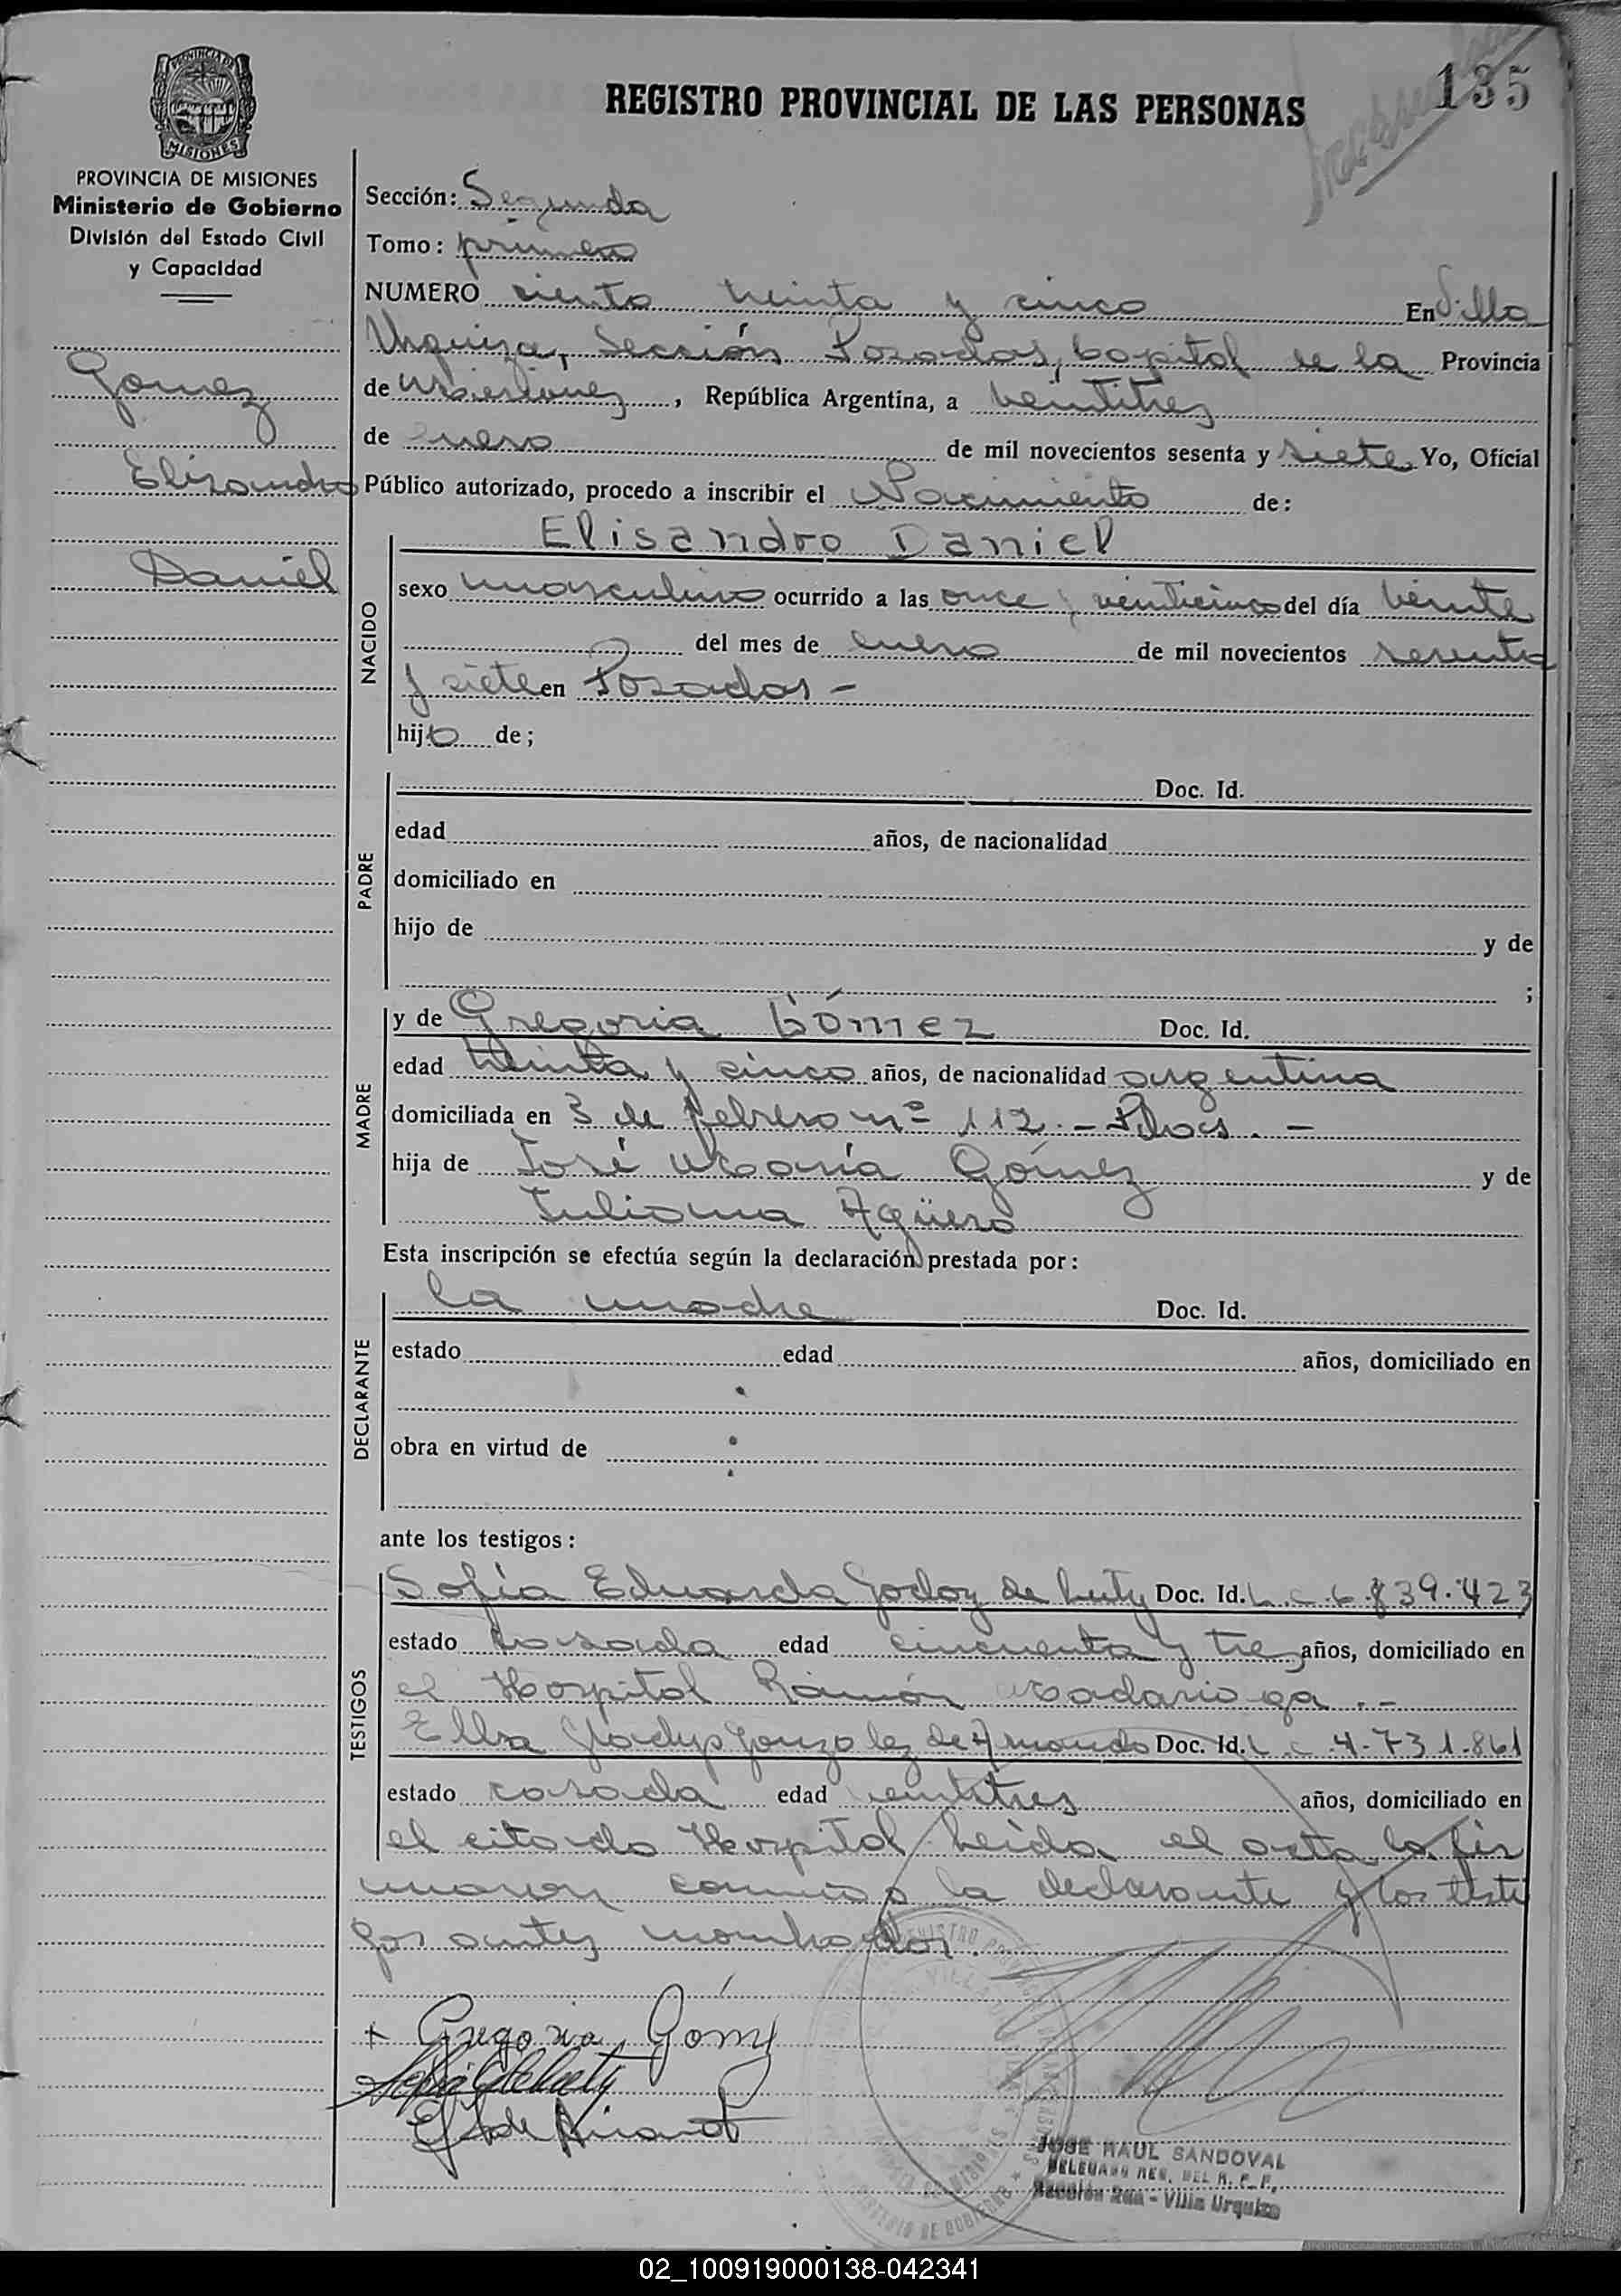 REGISTRO PROVINCIAL DE LAS PERSONAS
135
PROVINCIA DE
MISIONES
PROVINCIA DE MISIONES
Ministerio de Gobierno
División del Estado Civil
y Capacidad
Gomez
Elisandro
Daniel
Sección: Segunda
Tomo: primero
NUMERO ciento treinta y cinco En Villa
Urquiza, Sección Posadas, Capital de la Provincia
de Misiones, República Argentina, a veintitres
de enero de mil novecientos sesenta y siete Yo, Oficial
Público autorizado, procedo a inscribir el Nacimiento de:
NACIDO
Elisandro Daniel
sexo masculino ocurrido a las once y veinticinco del día veinte
del mes de enero de mil novecientos sesenta
y siete en Posadas -
hijo de;
PADRE
Doc. Id.
edad años, de nacionalidad
domiciliado en
hijo de y de
;
MADRE
y de Gregoria Gómez Doc. Id.
edad treinta y cinco años, de nacionalidad argentina
domiciliada en 3 de febrero nº 112. - Pdas. -
hija de José María Gómez y de
Juliana Agüero
Esta inscripción se efectúa según la declaración prestada por:
DECLARANTE
la madre Doc. Id.
estado edad años, domiciliado en
obra en virtud de
ante los testigos:
TESTIGOS
Sofía Eduarda Godoy de Doc. Id. L. C. 6.839.423
estado casada edad cincuenta y tres años, domiciliado en
el Hospital Ramón Madariaga. -
Elba Gladys Gonzalez de Doc. Id. L. C. 4.731.861
estado casada edad veintitres años, domiciliado en
el citado Hospital leida el acta la fir
maron conmigo la declarante y los testi
gos antes nombrados.
+ Gregoria Góm
JOSE RAUL SANDOVAL
DELEGADO REG. DEL R. P. P.
Sección 2da - Villa Urquiza
02_100919000138-042341